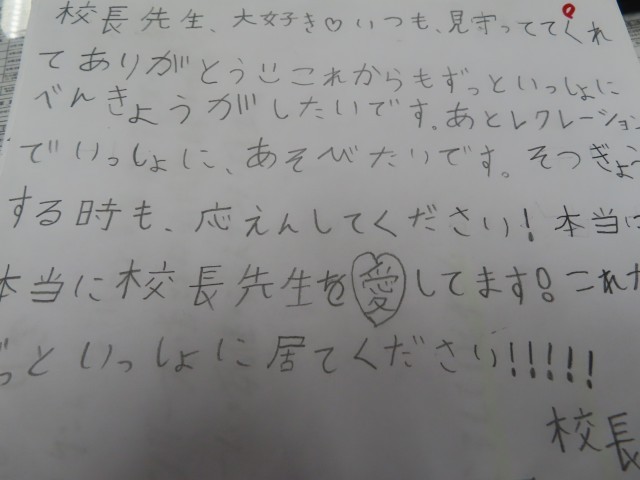 校長先生、大好き♡いつも、見守っててくれ
てありがとう!!これからもずっといっしょに
べんきょうがしたいです。あとレクレーション
でいっしょに、あそびたいです。そつぎょう
する時も、応えんしてください!本当に
本当に校長先生を愛してます!これか
ずっといっしょに居てください!!!!!
校長